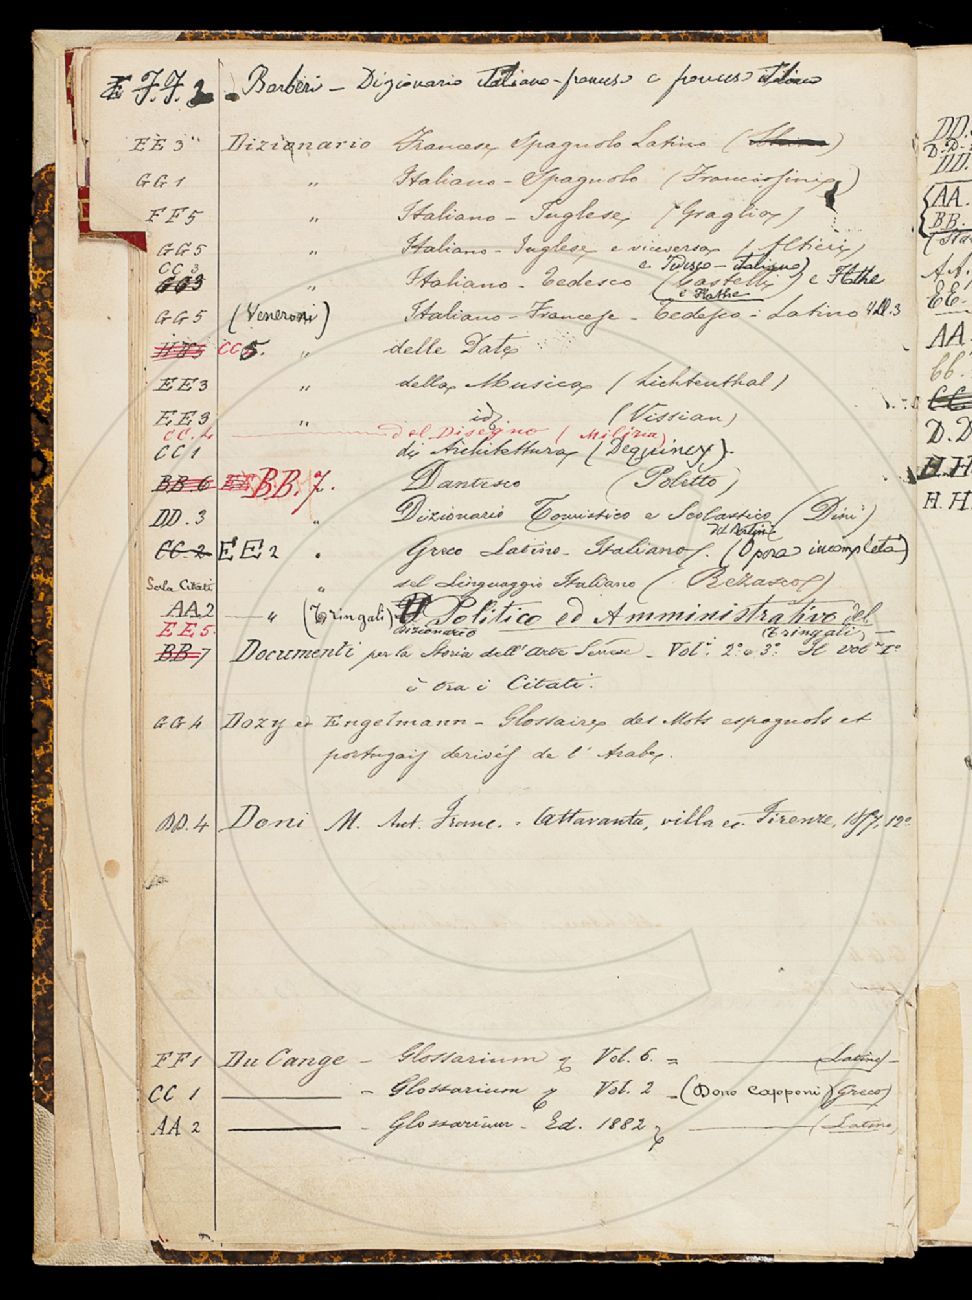 F.F. 2 Barbèri - Dizionario italiano-francese e francese italiano
EE 3 Dizionario Francese Spagnolo Latino
GG 1 " Italiano - Spagnolo (Franciosini)
FF 5 " Italiano - Inglese (Graglia)
GG 5 " Italiano - Inglese e viceversa (Altieri)
CC 3 e Tedesco - italiano)
GG 3 " Italiano - Tedesco (Castelli) e Flathe
e Flathe
GG 5 (Veneroni) Italiano - Francese - Tedesco - Latino
HH 5 CC 5. " delle Date
EE 3 " della Musica (Lichtenthal)
EE 3 " id. (Vissian)
CC. 4 del Disegno (Milizia)
CC 1 di Architettura (DeQuincy).
BB. 6 BB. 7. Dantesco (Poletto)
DD. 3 " Dizionario Tomistico e Scolastico (Dini)
CC. 2 EE 2 " Greco Latino - Italiano. (Opera incompleta)
Sala Citati " del Linguaggio Italiano (Rezasco)
AA 2 " (Tringali) Politico ed Amministrativo del
EE 5. Dizionario (Tringali)
BB 7 Documenti per la Storia dell' Arte Senese - Vol. 2° e 3° Il vol. I°
è tra i Citati.
GG 4 Dozy et Engelmann - Glossaire des Mots espagnols et
portugais derivés de l' Arabe.
DD. 4 Doni M. Ant. Franc. - Attavanta, villa ec. Firenze, 1857, 12°
FF 1 Du Cange - Glossarium Vol. 6. = (Latino)
CC 1 - Glossarium Vol. 2 - (Dono Capponi) (Greco)
AA 2 - Glossarium - Ed. 1882 (Latino)
DD.
D.D.
AA.
BB.
AA.
EE.
AA.
bb.
CC.
D.D
H.H.
H.H.